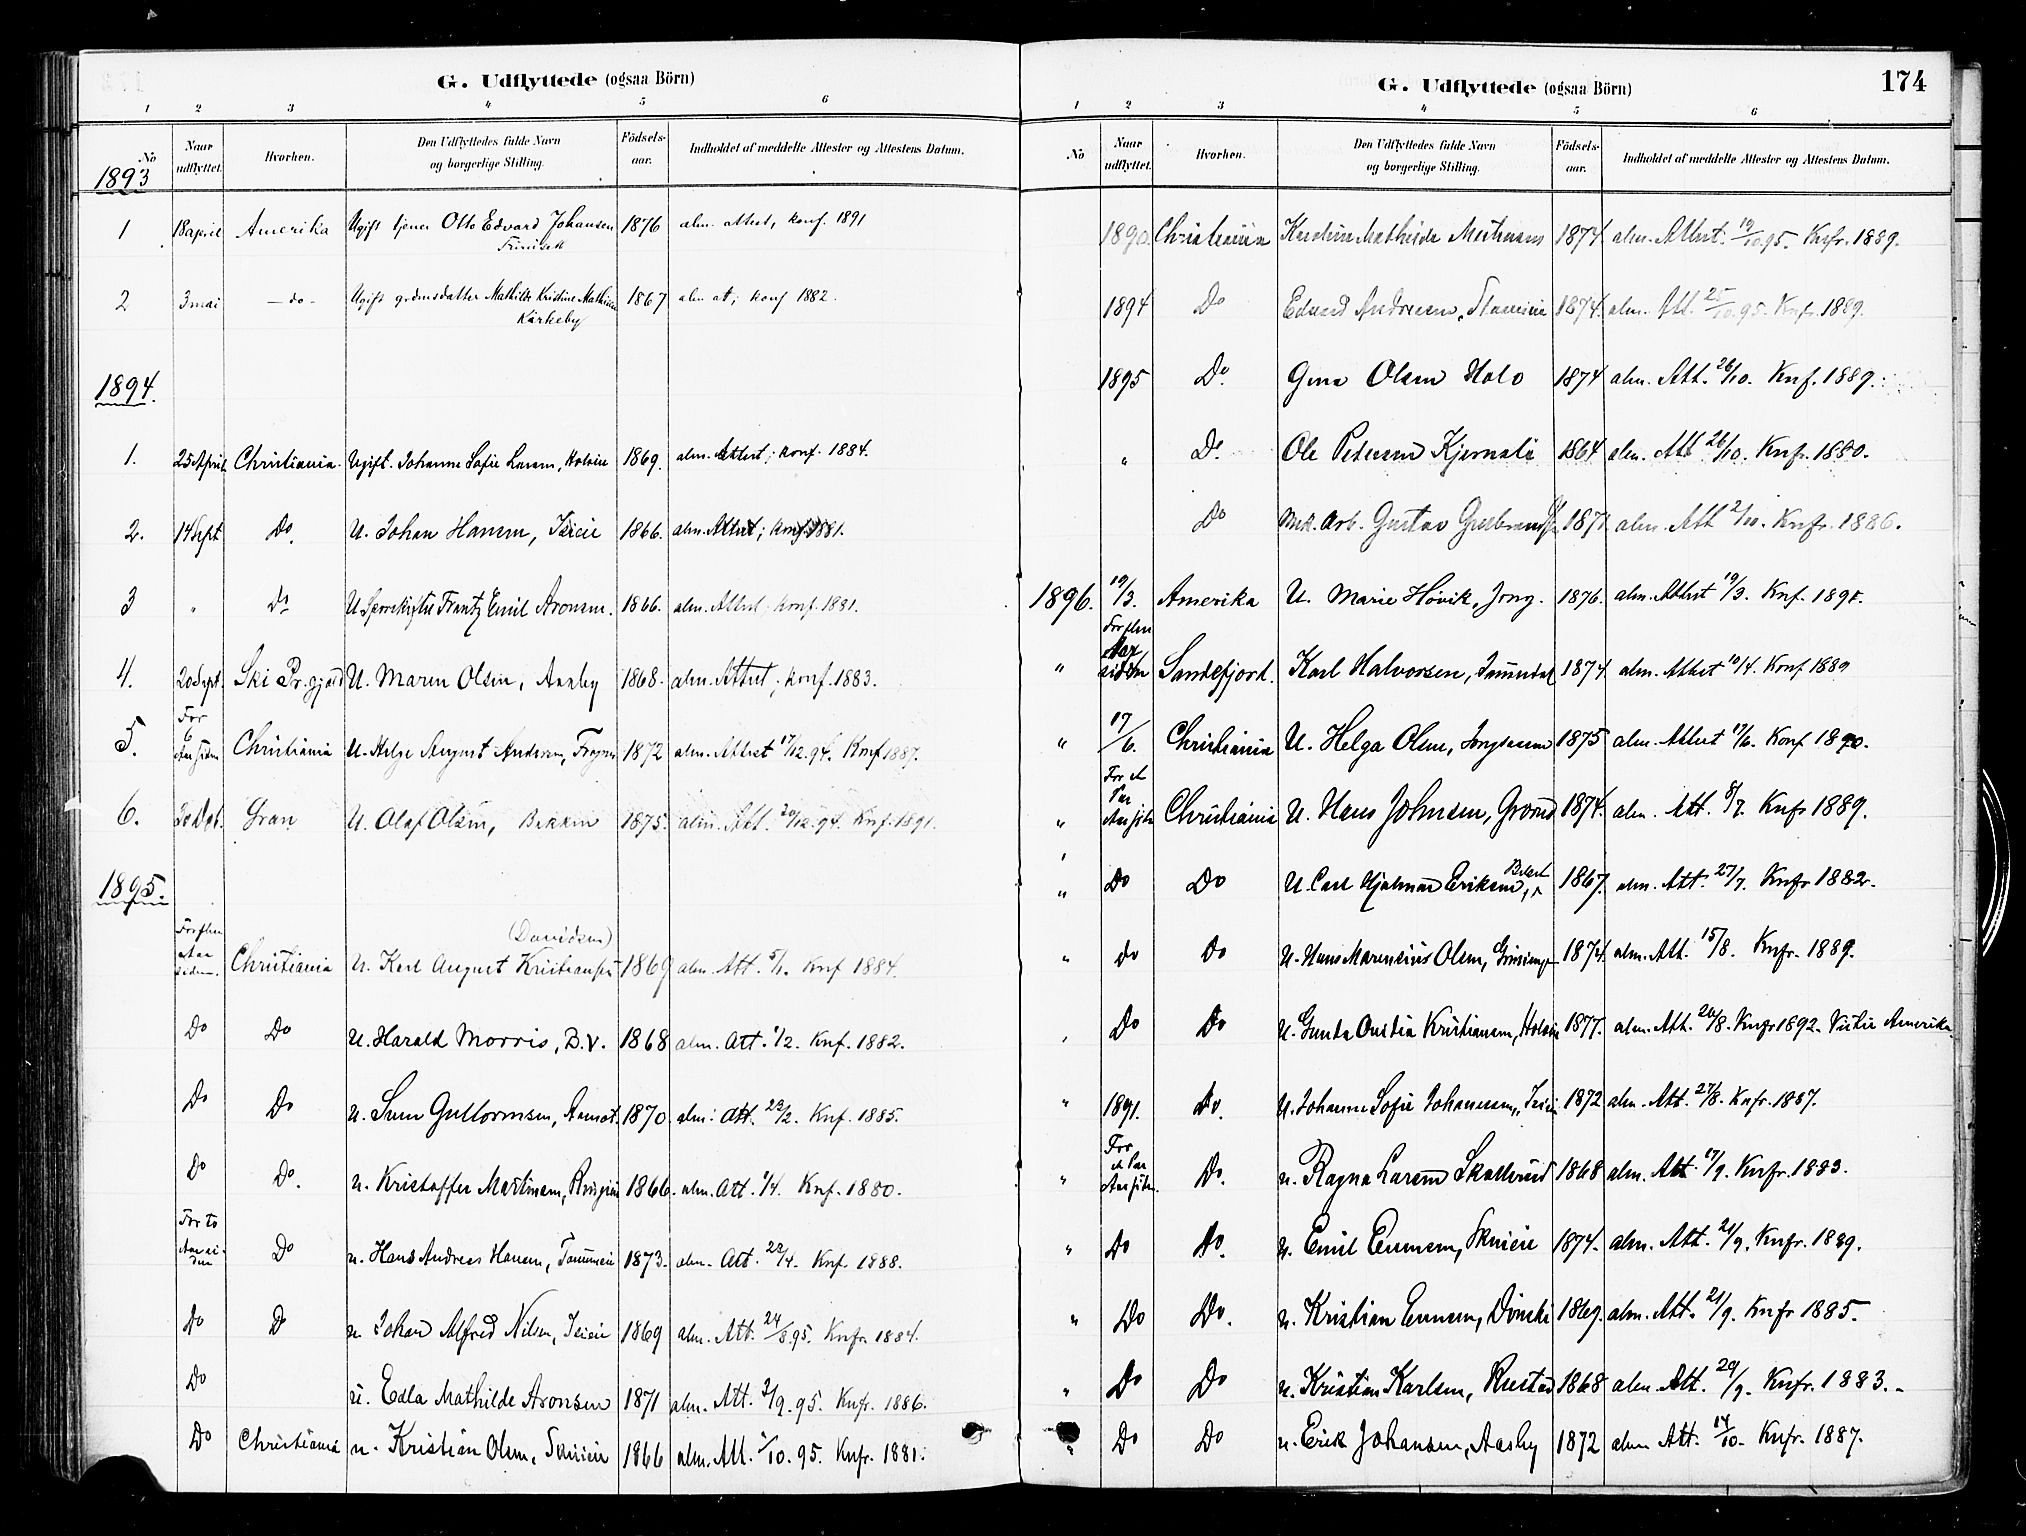 G. Udflyttede (ogsaa Börn)
1 2 3 4 5 6
No Naar udflyttet. Hvorhen. Den Udflyttedes fulde Navn og borgerlige Stilling. Födsels-aar. Indholdet af meddelte Attester og Attestens Datum.
1893
1 18 april Amerika Ugift tjener Otto Edvard Johansen 1876 alm. attest, konf. 1891
2 3 mai - do - Ugift grdmsdatter Mathilde Kristine 1867 alm at; konf 1882.
Kirkeby
1894.
1. 25 April Christiania. Ugift. Johanne Sofie Larsen, 1869. alm. Attest; konf. 1884.
2. 14 Sept Do. U. Johan Hansen, 1866. alm. Attest; konf. 1881.
3 " Do U. Frantz Emil Aronsen. 1866. alm. Attest; konf. 1881.
4. 20 Sept. Ski Pr.gjæld U. Maren Olsen, Aasby 1868. alm. Attest; konf. 1883.
5. For 6 Aar siden Christiania U. Helge August Andersen, 1872 alm. Attest 17/12.94. Konf 1887.
6. Gran U. Olaf Olsen, 1875. alm. Att. 20/12.94. Knf. 1891.
1895.
(Davidsen)
For flere Aar siden. Christiania U. Karl August Kristiansen 1869 alm. Att. 5/1. Knf 1884.
Do Do U. Harald Morris, B.V. 1868 alm. Att. 1/2. Knf. 1882.
Do Do u. Gullormsen, 1870 alm. Att. 22/2. Knf. 1885.
Do Do. u. Kristoffer Martinsen, 1866. alm. Att. 1/4. Knf. 1880.
For to Aar siden Do u. Hans Andreas Hansen, 1873. alm. Att. 22/4. Knf. 1888.
Do D u Johan Alfred Nilsen, 1869 alm. Att. 24/8.95. Knfr. 1884.
Do u. Edla Mathilde Aronsen 1871 alm. Att. 2/9.95. Knfr. 1886.
Do Christiania u. Kristian Olsen, 1866 alm. Att. 1/10.95. Knfr. 1881.
G. Udflyttede (ogsaa Börn) 174
1 2 3 4 5 6
No Naar udflyttet. Hvorhen. Den Udflyttedes fulde Navn og borgerlige Stilling. Födsels-aar. Indholdet af meddelte Attester og Attestens Datum.
1890 Christiania Mathilde 1874 alm. Attest. 19/10.95. Knfr. 1889.
1894 Do Edvard Andresen, 1874. alm. Att. 25/10.95. Knfr. 1889.
1895 Do. Gina Olsen Holo 1874 alm. Att. 26/10. Knf. 1889.
" Do. Ole Petersen 1864 alm. Att 26/10. Knfr. 1880.
Do Mek. Arb. Gustav 1871 alm. Att 2/10. Knfr. 1886.
1896. 19/3. Amerika U. Marie Hövik, Jong. 1876. alm. Attest 19/3. Knf.
" For flere Aar siden Sandefjord. Karl Halvorsen, 1874. alm. Attest 10/4. Konf 1889
" 17/6. Christiania U. Helga Olsen, 1875 alm. Attest 17/6. Konf 1890.
" For et Par Aar siden Christiania U. Hans Johnsen, 1874. alm. Att. 8/7. Knfr 1889.
" Do Do U. Carl Hjalmar Eriksen, 1867. alm. Att. 27/7. Knfr 1882.
" do Do U. Hans Marensius Olsen, 1874. alm. Att. 15/8. Knfr. 1889.
" Do Do U. Gunda Kristiansen, 1877. alm. Att. 20/8. Knfr 1892. Amerika.
" 1891. Do. U. Johanne Sofie Johannesen, 1872 alm. Att. 27/8. Knfr. 1887.
" For et Par Aar siden. Do. u. Ragna Larsen Skollerud 1868 alm. Att. 17/9. Knfr. 1883.
" Do Do. u. Emil Evensen, 1874. alm. Att. 21/9. Knfr. 1889.
" Do Do. u. Kristian Evensen, 1869. alm. Att. 21/9. Knfr 1885.
" Do Do u. Kristian Karlsen, Rustad 1868 alm. Att. 29/9. Knfr. 1883.
" Do Do u. Erik Johansen, Aasby 1872 alm Att. 14/10. Knfr. 1887.